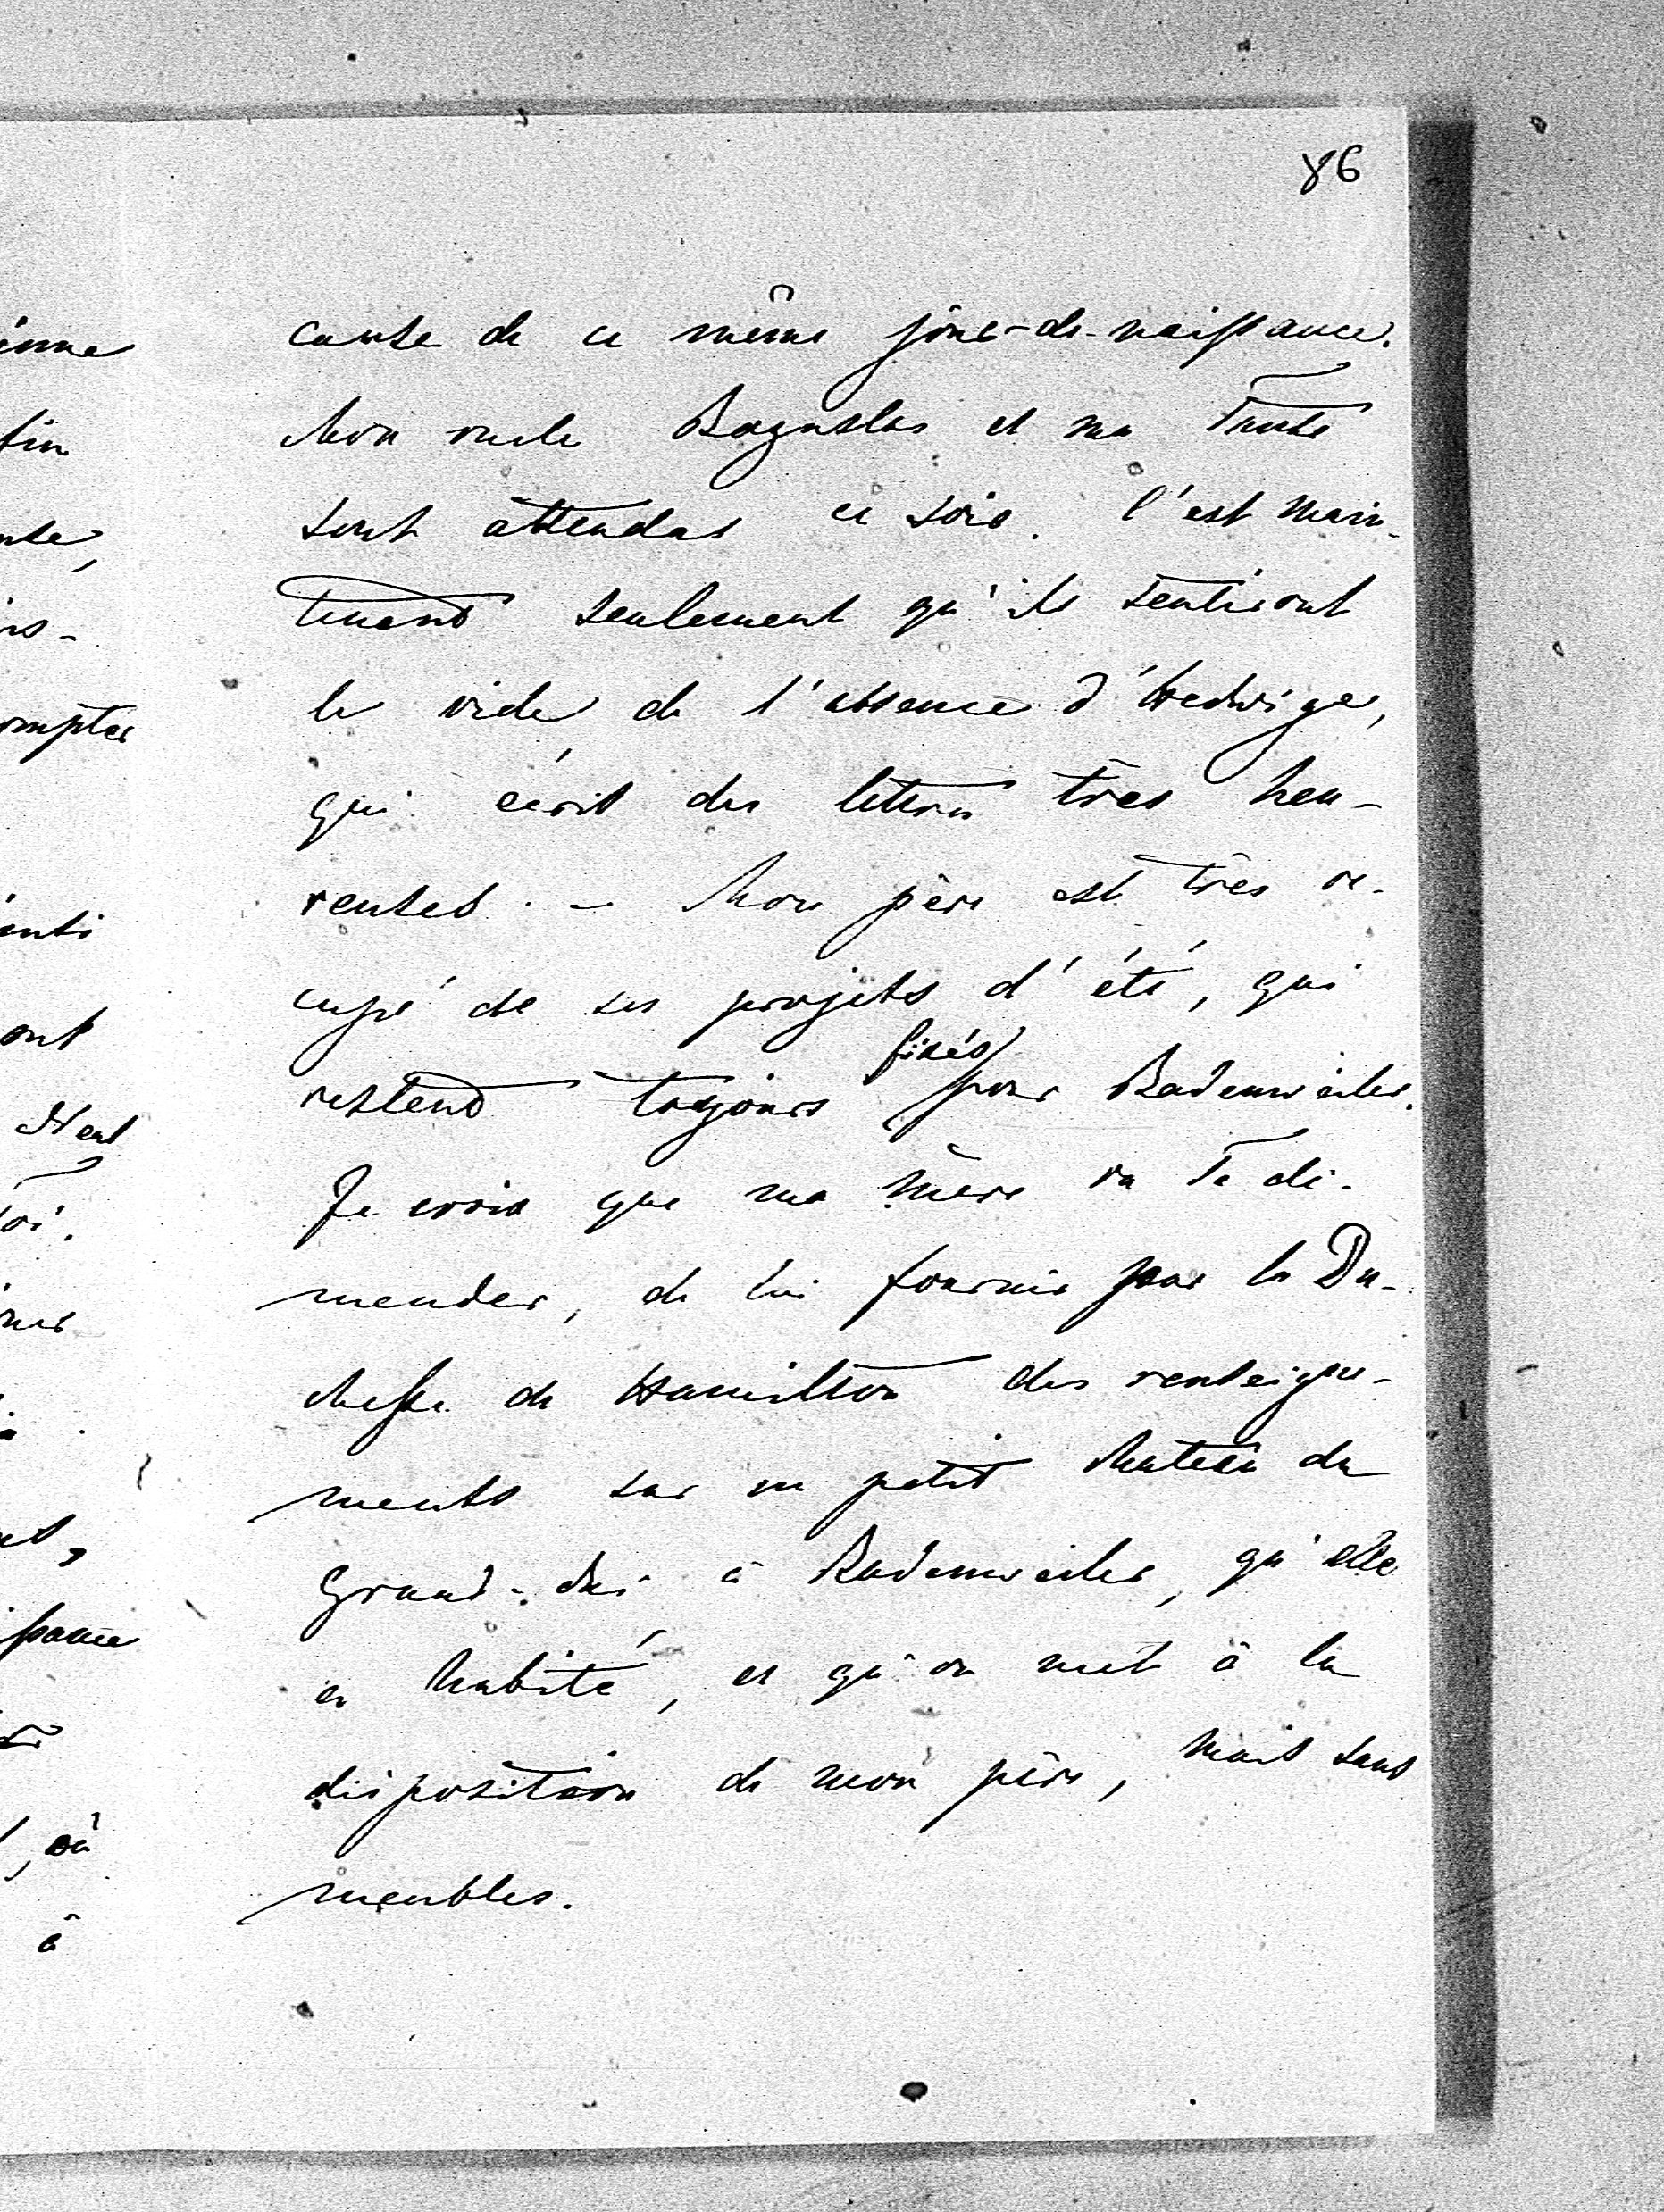 86
cause de ce même jour-de-naissance.
Mon oncle Boguslas et ma Tante
sont attendus ce soir. C'est main-
tenant seulement qu'ils sentiront
le vide de l'absence d'Hedwige,
qui écrit des lettres très heu-
reuses. - Mon père est très oc-
cupé de ses projets d'été, qui
fixés
restent toujours pour Badenweiler.
Je crois que ma mère va Te de-
mander, de lui fournir par la Du-
chesse de Hamilton des renseigne-
ments sur un petit chateau du
Grand-duc à Badenweiler, qu'elle
a habité, et qu'on met à la
disposition de mon père, mais sans
meubles.